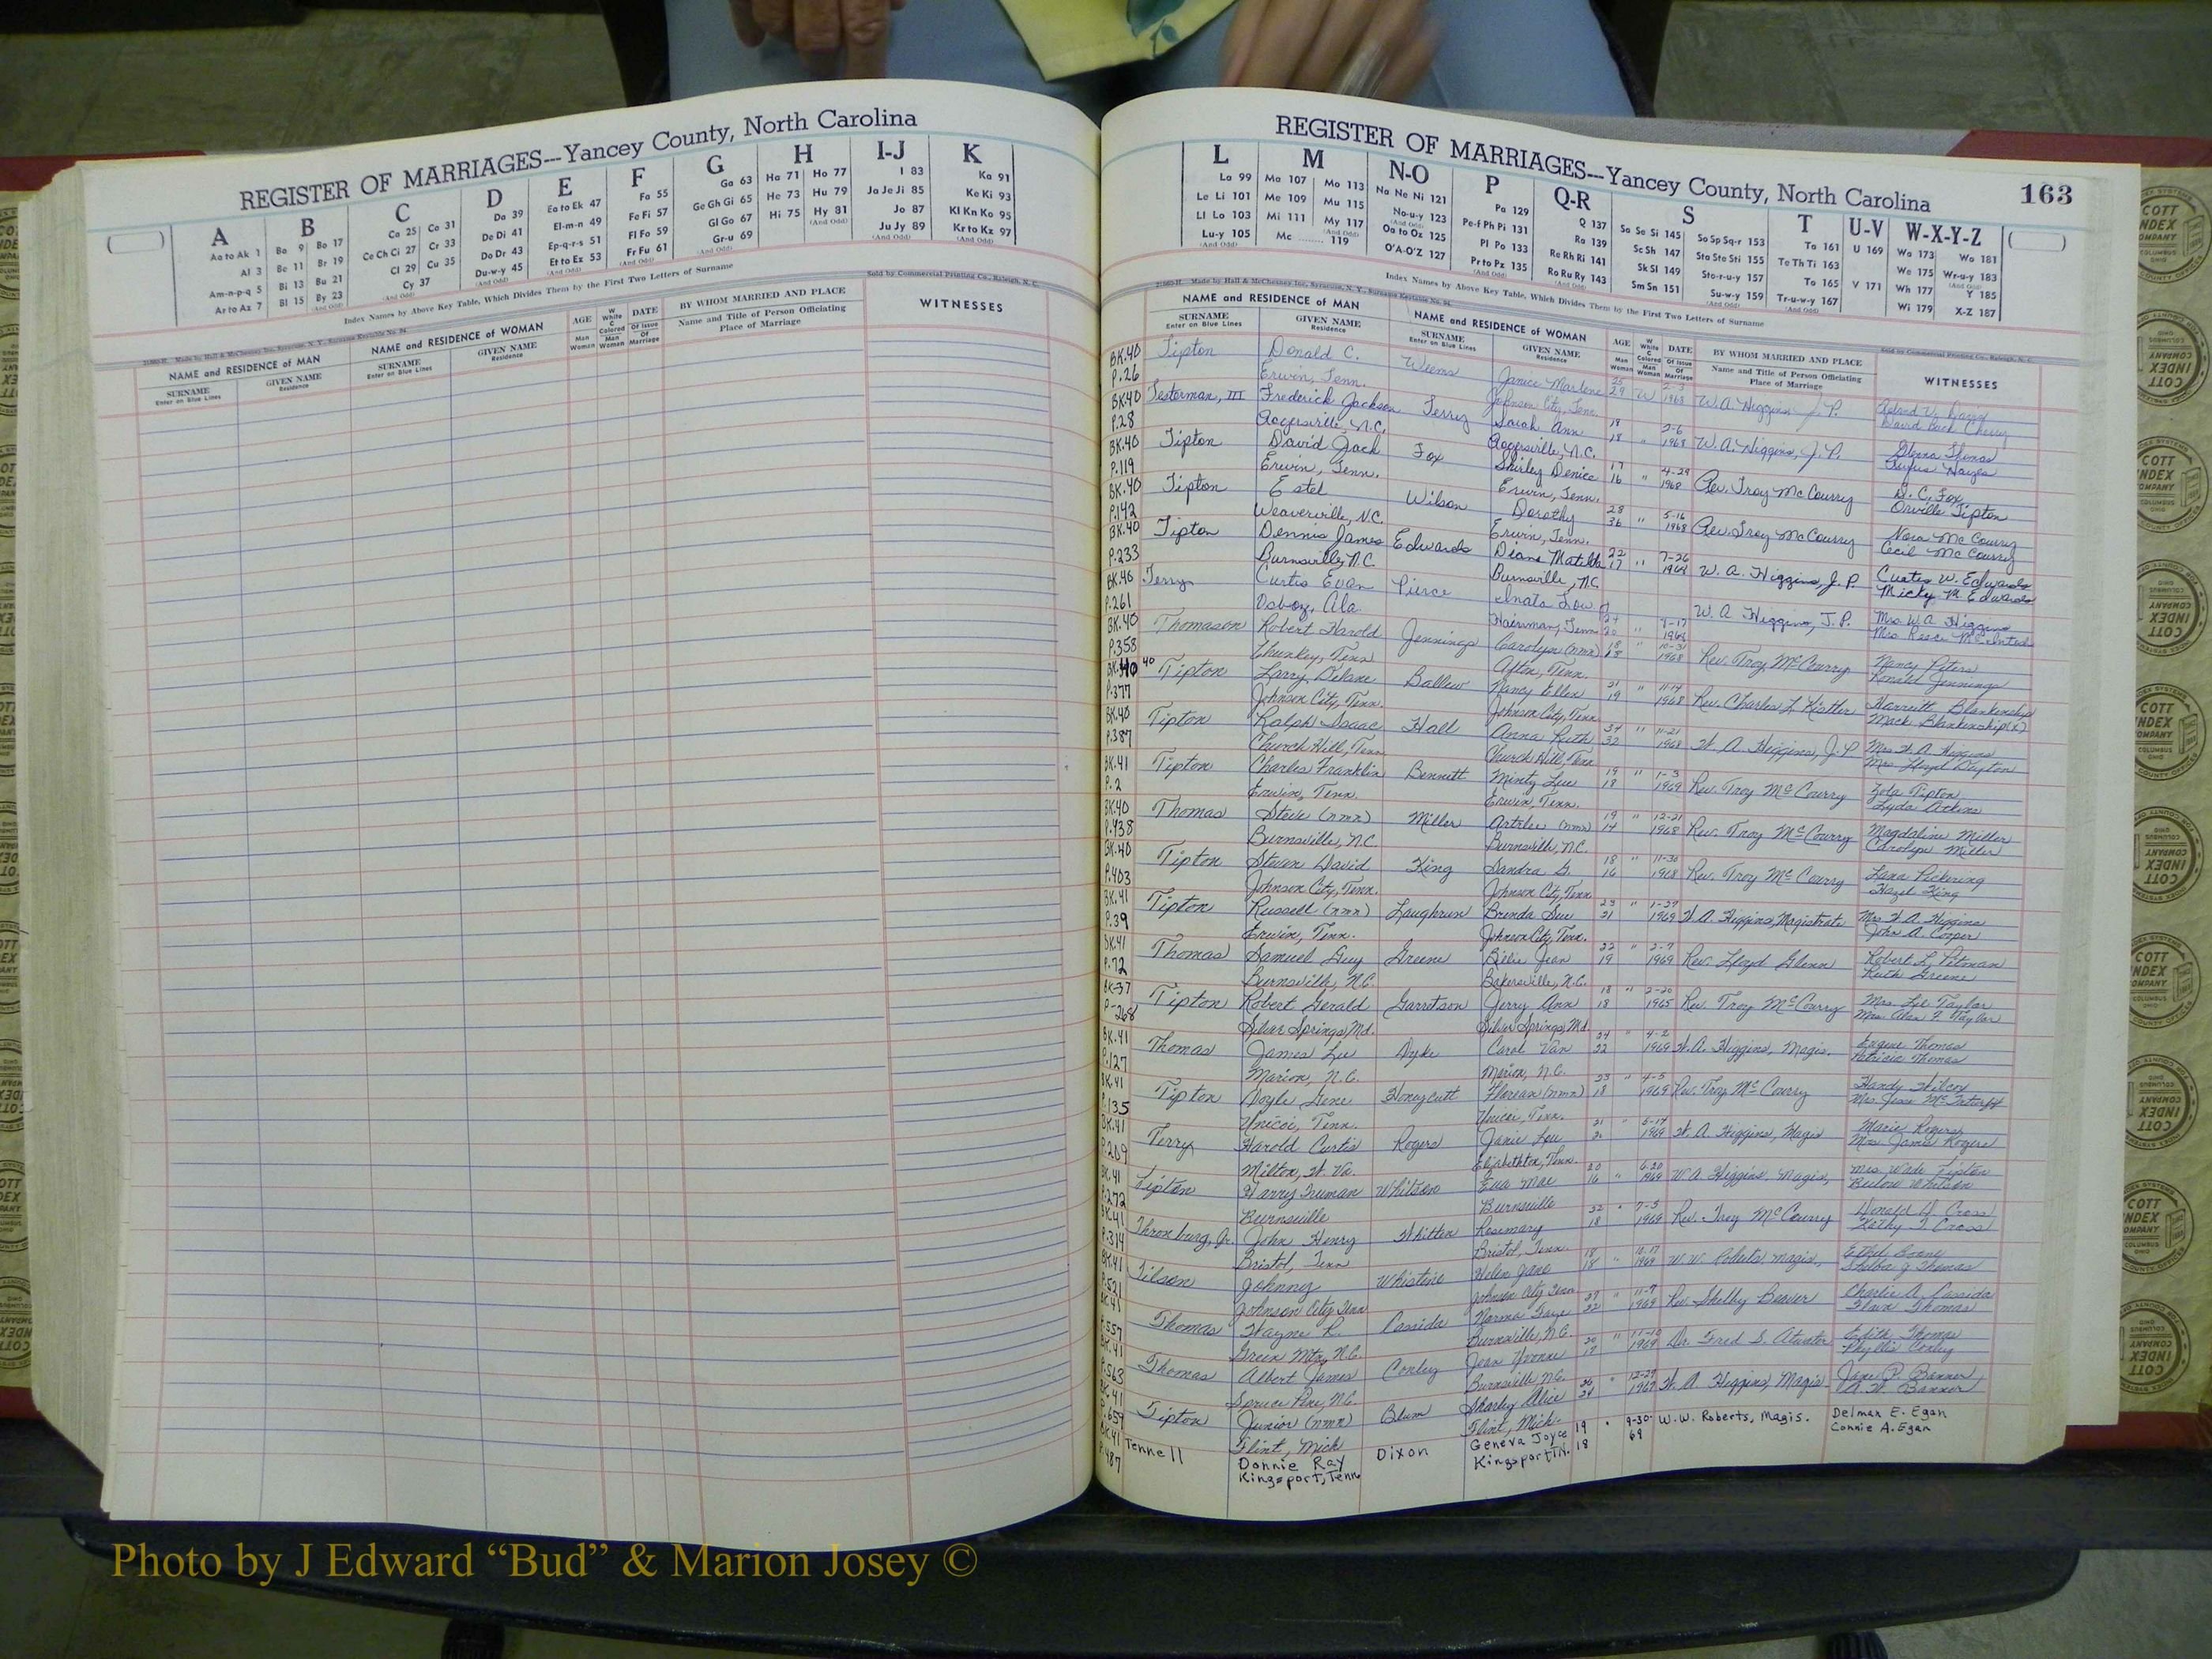 REGISTER OF MARRIAGES---Yancey County, North Carolina
A B C D E F G H I-J K
Aa to Ak 1 Ba 9 Bo 17 Ca 25 Co 31 Da 39 Ea to Ek 47 Fa 55 Ga 63 Ha 71 Ho 77 I 83 Ka 91
Al 3 Be 11 Br 19 Ce Ch Ci 27 Cr 33 De Di 41 El-m-n 49 Fe Fi 57 Ge Gh Gi 65 He 73 Hu 79 Ja Je Ji 85 Ke Ki 93
Am-n-p-q 5 Bi 13 Bu 21 Cl 29 Cu 35 Do Dr 43 Ep-q-r-s 51 Fl Fo 59 Gl Go 67 Hi 75 Hy 81 Jo 87 Kl Kn Ko 95
Ar to Az 7 Bl 15 By 23 Cy 37 Du-w-y 45 Et to Ez 53 Fr Fu 61 Gr-u 69 Ju Jy 89 Kr to Kz 97
Index Names by Above Key Table, Which Divides Them by the First Two Letters of Surname
Sold by Commercial Printing Co., Raleigh, N. C.
NAME and RESIDENCE of MAN
SURNAME Enter on Blue Lines
GIVEN NAME Residence
NAME and RESIDENCE of WOMAN
SURNAME Enter on Blue Lines
GIVEN NAME Residence
AGE Man Woman
W White C Colored Man Woman
DATE Of Issue Of Marriage
BY WHOM MARRIED AND PLACE
Name and Title of Person Officiating
Place of Marriage
WITNESSES
REGISTER OF MARRIAGES---Yancey County, North Carolina 163
L M N-O P Q-R S T U-V W-X-Y-Z
La 99 Ma 107 Mo 113 Na Ne Ni 121 Pa 129 Q 137 Sa Se Si 145 So Sp Sq-r 153 Ta 161 U 169 Wa 173 Wo 181
Le Li 101 Me 109 Mu 115 No-u-y 123 Pe-f Ph Pi 131 Ra 139 Sc Sh 147 Sta Ste Sti 155 Te Th Ti 163 We 175 Wr-u-y 183
Ll Lo 103 Mi 111 My 117 Oa to Oz 125 Pl Po 133 Re Rh Ri 141 Sk Sl 149 Sto-r-u-y 157 To 165 V 171 Wh 177 Y 185
Lu-y 105 Mc 119 O'A-O'Z 127 Pr to Pz 135 Ro Ru Ry 143 Sm Sn 151 Su-w-y 159 Tr-u-w-y 167 Wi 179 X-Z 187
Index Names by Above Key Table, Which Divides Them by the First Two Letters of Surname
NAME and RESIDENCE of MAN
SURNAME Enter on Blue Lines
GIVEN NAME Residence
NAME and RESIDENCE of WOMAN
SURNAME Enter on Blue Lines
GIVEN NAME Residence
AGE Man Woman
W White C Colored Man Woman
DATE Of Issue Of Marriage
BY WHOM MARRIED AND PLACE
Name and Title of Person Officiating
Place of Marriage
WITNESSES
BK.40 Tipton Donald C. Weems Janice Marlene 2-3
P.26 Erwin, Tenn. Johnson City, Tenn. 29 W 1968 W.A. Higgins J.P.
BK.40 Testerman, III Frederick Jackson Terry Sarah Ann 18 2-6
P.28 Rogersville, N.C. Rogersville, N.C. 18 " 1968 W.A. Higgins, J.P. Glenna Thomas
Rufus Hayes
BK.40 Tipton David Jack Fox Shirley Denice 17 4-29
P.119 Erwin, Tenn. Erwin, Tenn. 16 " 1968 Rev. Troy McCourry D.C. Fox
Orville Tipton
BK.40 Tipton Estel Wilson Dorothy 28 5-16
P.142 Weaverville, N.C. Erwin, Tenn. 36 " 1968 Rev. Troy McCourry Nora McCourry
Cecil McCourry
BK.40 Tipton Dennis James Edwards Diane Matilda 22 7-26
P.233 Burnsville, N.C. Burnsville, N.C. 17 " 1968 W. A. Higgins, J.P. Curtis W. Edwards
Micky M. Edwards
BK.40 Terry Curtis Evan Pierce
P.261 W. A. Higgins, J.P. Mrs. W.A. Higgins
BK.40 Thomason Robert Harold Jennings Carolyn (nmn) 18 " 10-31
P.358 Chuckey, Tenn Afton, Tenn. 18 1968 Rev. Troy McCourry Nancy Peters
Ronald Jennings
BK.40 40 Tipton Larry Delane Ballew Nancy Ellen 21 " 11-14
P.377 Johnson City, Tenn. Johnson City, Tenn. 19 1968 Rev. Charles L. Kistler Harriett Blankenship
Mack Blankenship(s)
BK.40 Tipton Ralph Isaac Hall Anna Ruth 34 " 11-21
P.387 Church Hill, Tenn Church Hill, Tenn 32 1968 W. A. Higgins, J.P. Mrs. W. A. Higgins
Mrs. Lloyd
BK.41 Tipton Charles Franklin Bennett Minty Lue 19 " 1-3
P.2 Erwin, Tenn. Erwin, Tenn. 18 1969 Rev. Troy McCourry Zola Tipton
Lyda Adkins
BK.40 Thomas Steve (nmn) Miller Artilee (nmn) 19 " 12-21
P.438 Burnsville, N.C. Burnsville, N.C. 14 1968 Rev. Troy McCourry Magdaline Miller
Carolyn Miller
BK.40 Tipton Steven David King Sandra G. 18 " 11-30
P.403 Johnson City, Tenn. Johnson City, Tenn. 16 1968 Rev. Troy McCourry Lana Pickering
Hazel King
BK.41 Tipton Russell (nmn) Laughrun Brenda Sue 23 " 1-29
P.39 Erwin, Tenn. Johnson City, Tenn. 21 1969 W.A. Higgins, Magistrate Mrs. W.A. Higgins
John A. Cooper
BK.41 Thomas Samuel Guy Greene Billie Jean 22 " 2-7
P.72 Burnsville, N.C. Bakersville, N.C. 19 1969 Rev. Lloyd Glenn Robert L. Pitman
Ruth Greene
BK-37 Tipton Robert Gerald Garretson Jerry Ann 18 " 2-20
P-268 Silver Springs, Md. Silver Springs, Md. 18 1965 Rev. Troy McCourry Mrs. Lee Taylor
Mrs. Alan F. Taylor
BK.41 Thomas James Lee Dyke Carol Van 24 " 4-2
P.127 Marion, N.C. Marion, N.C. 22 1969 W.A. Higgins, Magis. Eugene Thomas
Patricia Thomas
BK.41 Tipton Doyle Gene Honeycutt Florean (nmn) 23 " 4-5
P.135 Unicoi, Tenn. Unicoi, Tenn. 18 1969 Rev. Troy McCourry
BK.41 Terry Harold Curtis Rogers Janie Lou 21 " 5-17
P.209 Milton, W. Va. Elizabethton, Tenn. 1969 W.A. Higgins, Magis Macie Rogers
Mrs. James Rogers
BK.41 Tipton Harry Truman Whitson Eva Mae 20 6-20
P.272 Burnsville Burnsville 16 " 1969 W.A. Higgins, Magis., Mrs. Wade Tipton
Beulow Whitson
BK.41 Thronburg, Jr. John Henry Whitten Rosemary 22 " 7-5
P.314 Bristol, Tenn Bristol, Tenn. 18 1969 Rev. Troy McCourry Donald H. Cross
Kathy J. Cross
BK.41 Tilson Johnny Whistine Helen Jane 18 10-17
P.521 Johnson City, Tenn Johnson City Tenn 18 " 1969 W.W. Roberts Magis.,
Thomas
BK.41 Thomas Wayne R. Cassida Norma Faye 27 " 11-9
P.557 Green Mtn., N.C. Burnsville, N.C. 22 1969 Rev. Shelby Beaver Charlie A. Cassida
Thomas
BK.41 Thomas Albert James Conley Jean Yvonne 20 " 11-10
P.563 Spruce Pine, N.C. Burnsville, N.C. 19 1969 Dr. Fred S. Atwater Edith Thomas
Phyllis Conley
BK.41 Tipton Junior (nmn) Blum Sharley Alice 26 " 12-29
P.659 Flint, Mich Flint, Mich. 24 1969 W.A. Higgins, Magis Jane P. Banner
A.W. Banner
BK.41 Tennell Donnie Ray Dixon Geneva Joyce 19 " 9-30- W.W. Roberts, Magis. Delman E. Egan
P.487 Kingsport, Tenn Kingsport TN. 18 69 Connie A. Egan
Photo by J Edward “Bud” & Marion Josey ©